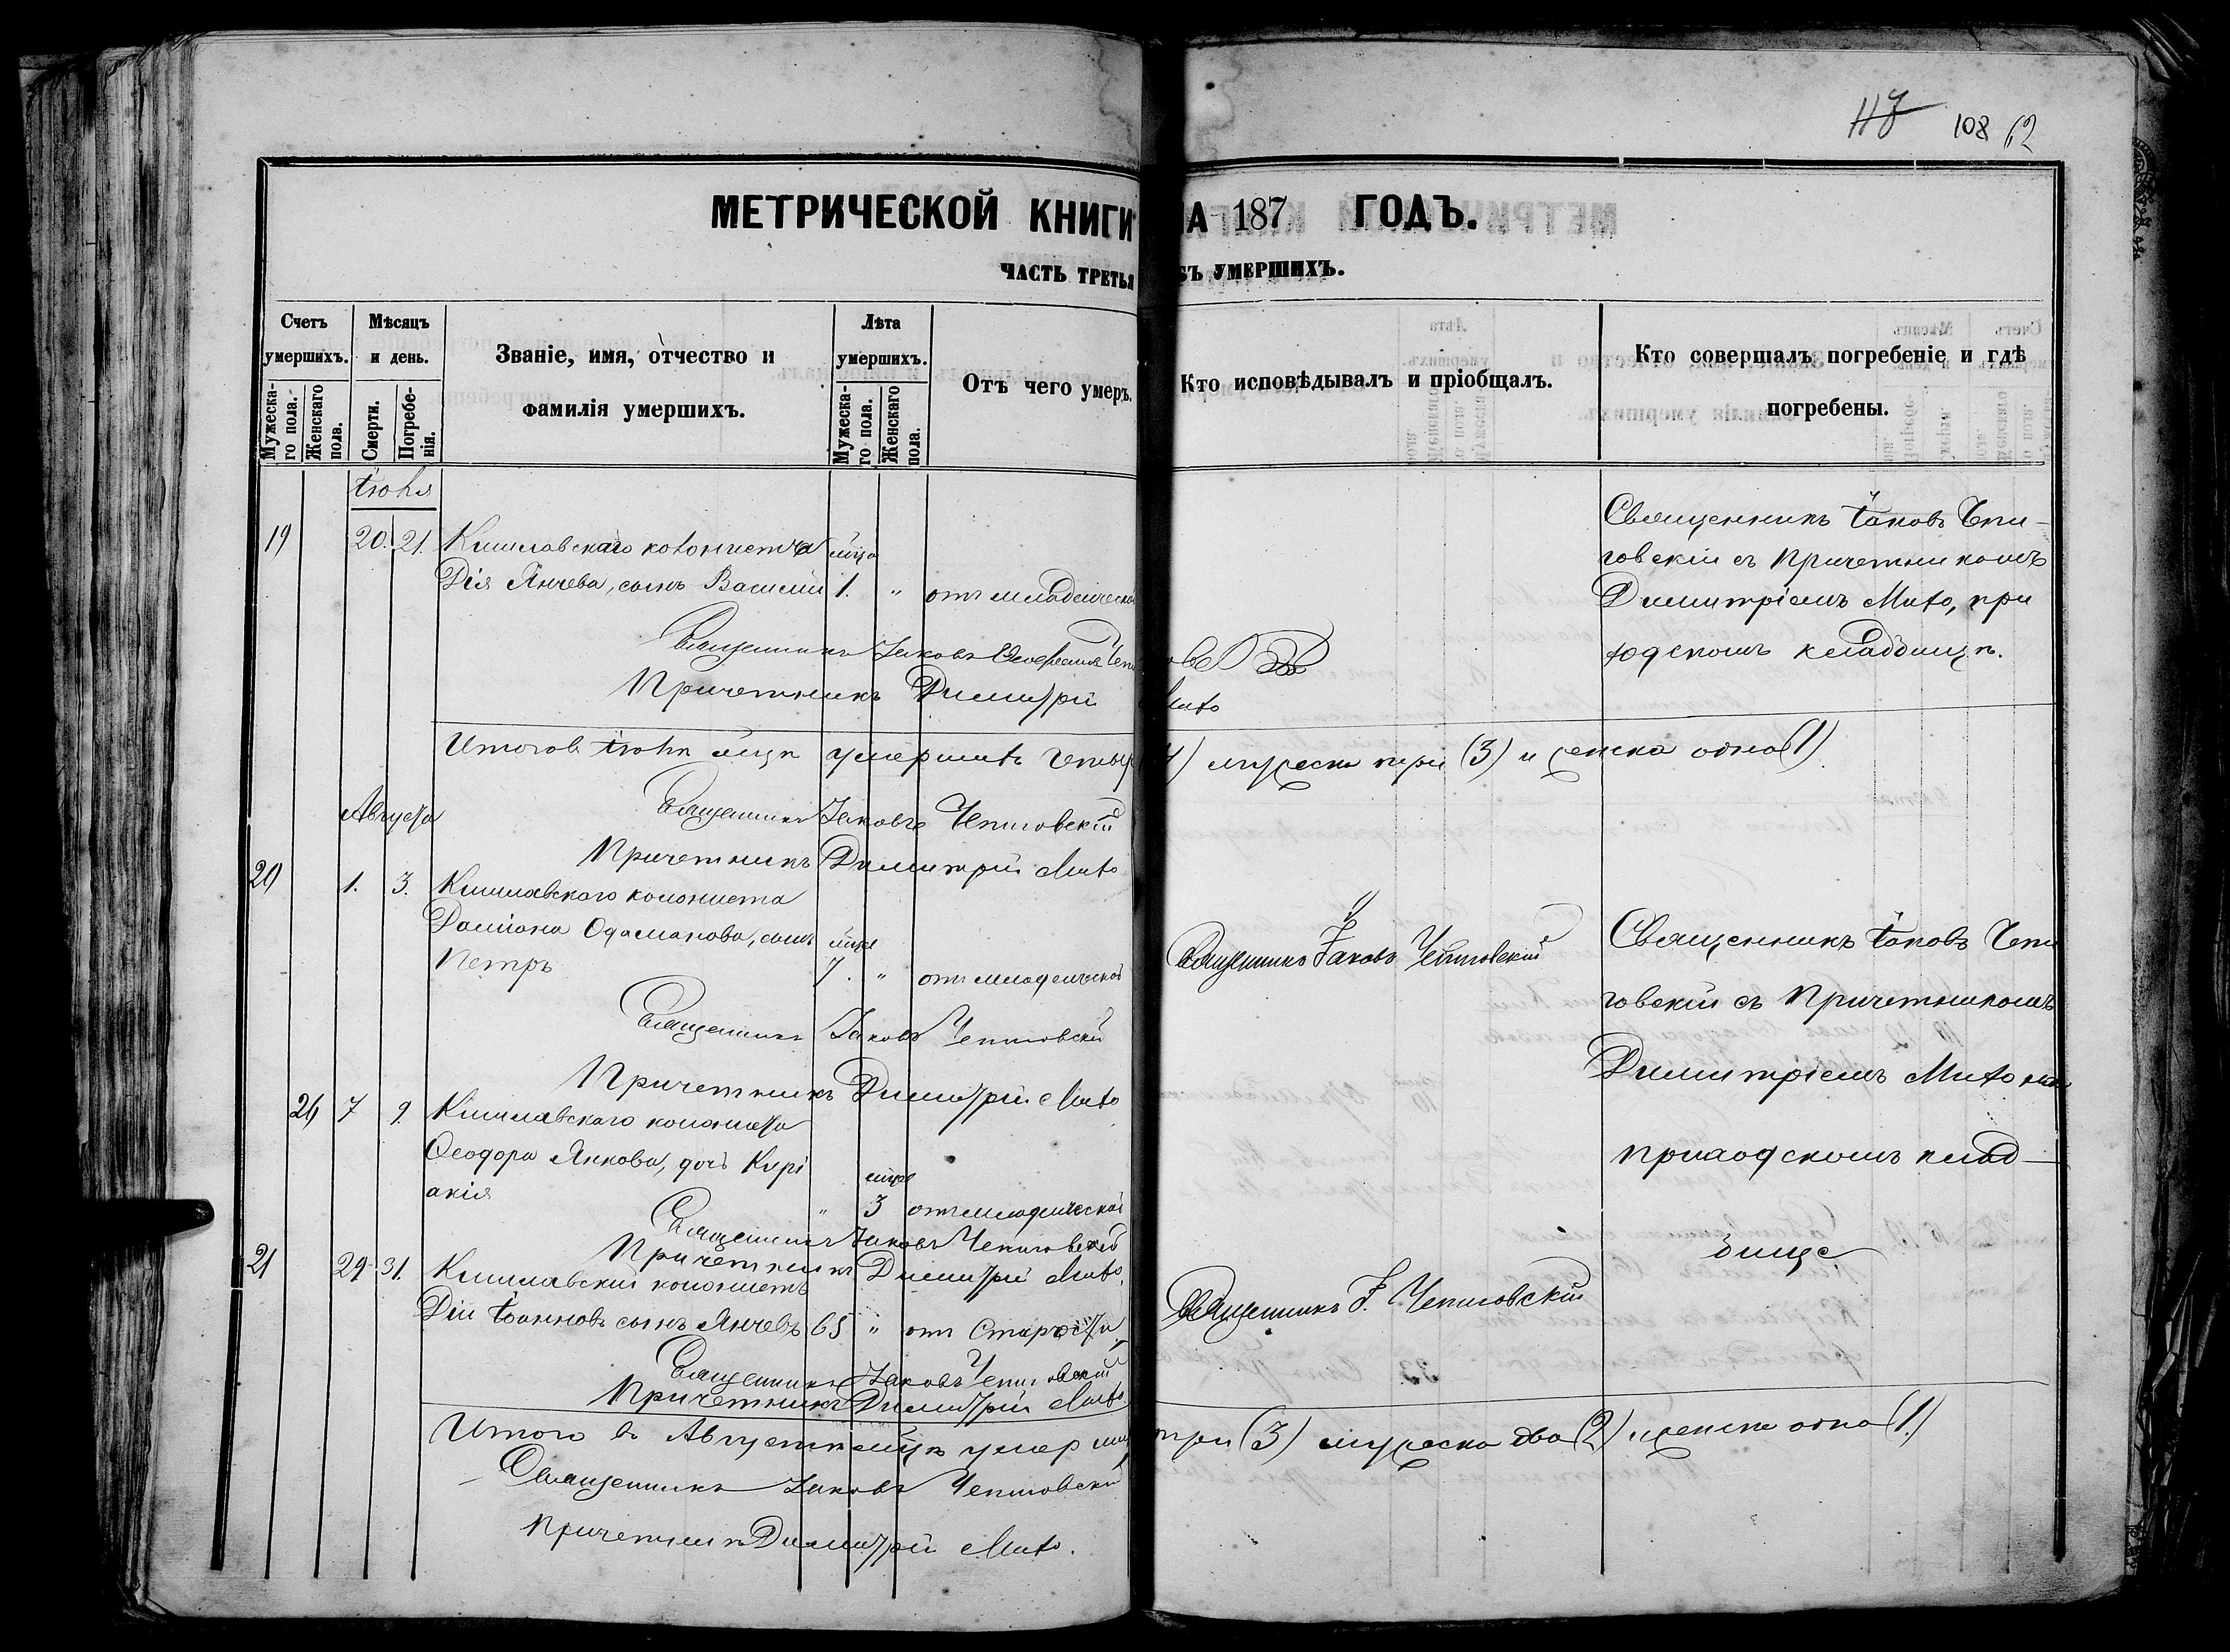 117 108 62
МЕТРИЧЕСКОЙ КНИГИ НА 187 ГОДЪ.
ЧАСТЬ ТРЕТЬЯ ОБЪ УМЕРШИХЪ.
Счетъ умершихъ.
Мужеска-го пола.
Женскаго пола.
Мѣсяцъ и день.
Смерти.
Погребе-нія.
Званіе, имя, отчество и фамилія умершихъ.
Лѣта умершихъ.
Мужеска-го пола.
Женскаго пола.
Отъ чего умеръ.
Кто исповѣдывалъ и пріобщалъ.
Кто совершалъ погребеніе и гдѣ погребены.
Іюля
19 20. 21. Кишлавскаго колониста мца
Дія Янчева, сынъ Василій 1. " отъ младенческой
Священникъ Іаковъ
Причетникъ Димитрій Мито
Священникъ Іаковъ Чепи-
говскій съ Причетникомъ
Димитріемъ Мито, при
ходскомъ кладбищѣ.
Итого въ Іюлѣ мцѣ умершихъ четыре (4) мужеска три (3) и женска одна (1)
Священникъ Іаковъ Чепиговскій
Причетникъ Димитрій Мито
Августа
20 1. 3. Кишлавскаго колониста
Даміана Одаманова, сынъ мце
Петръ 7. " отъ младенческой
Священникъ Іаковъ Чепиговскій
Причетникъ Димитрій Мито
Священникъ Іаковъ Чепиговскій
Священникъ Іаковъ Чепи
говскій съ Причетникомъ
Димитріемъ Мито на
приходскомъ клад-
бище
26 7 9. Кишлавскаго колониста
Ѳеодора Янкова, дочь Кирі
акія мце
" 3 отъ младенческой
Священникъ Іаковъ Чепиговскій
Причетникъ Димитрій Мито
21 29 31. Кишлавскій колонистъ
Дій Іоанновъ сынъ Янчевъ 65 " отъ Старости
Священникъ Іаковъ Чепиговскій
Причетникъ Димитрій Мито.
Священникъ І. Чепиговскій
Итого въ Августѣ мцѣ умер три (3) мужеска два (2) женска одна (1.)
Священникъ Іаковъ Чепиговскій
Причетникъ Димитрій Мито.